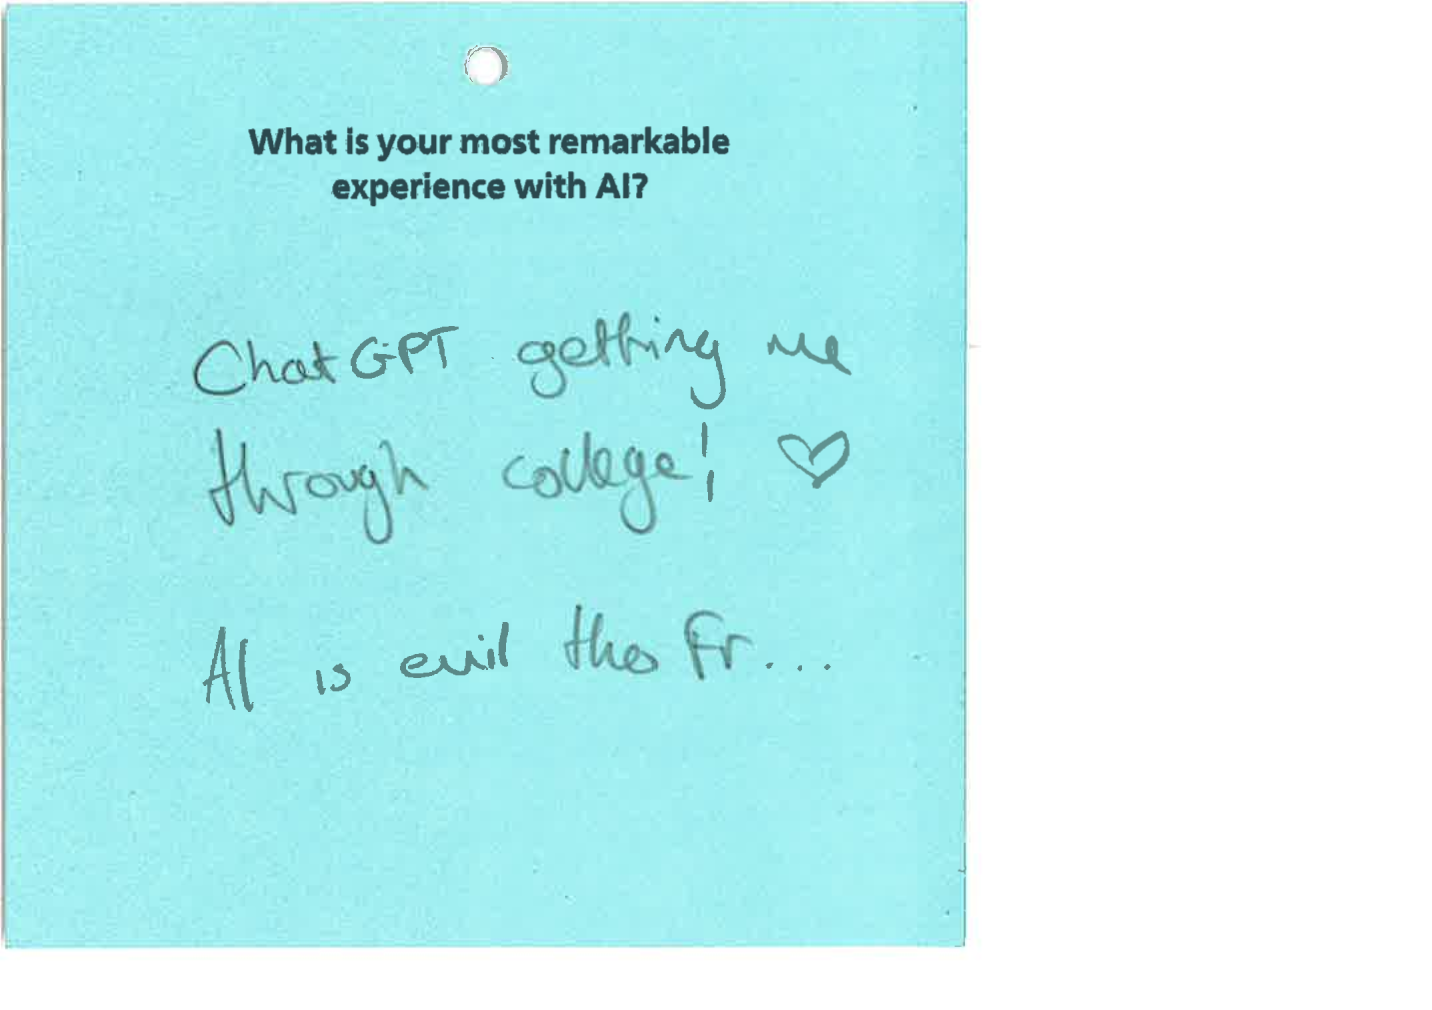 What is your most remarkable
experience with AI?
ChatGPT getting me
through college! ♡
AI is evil tho Fr...